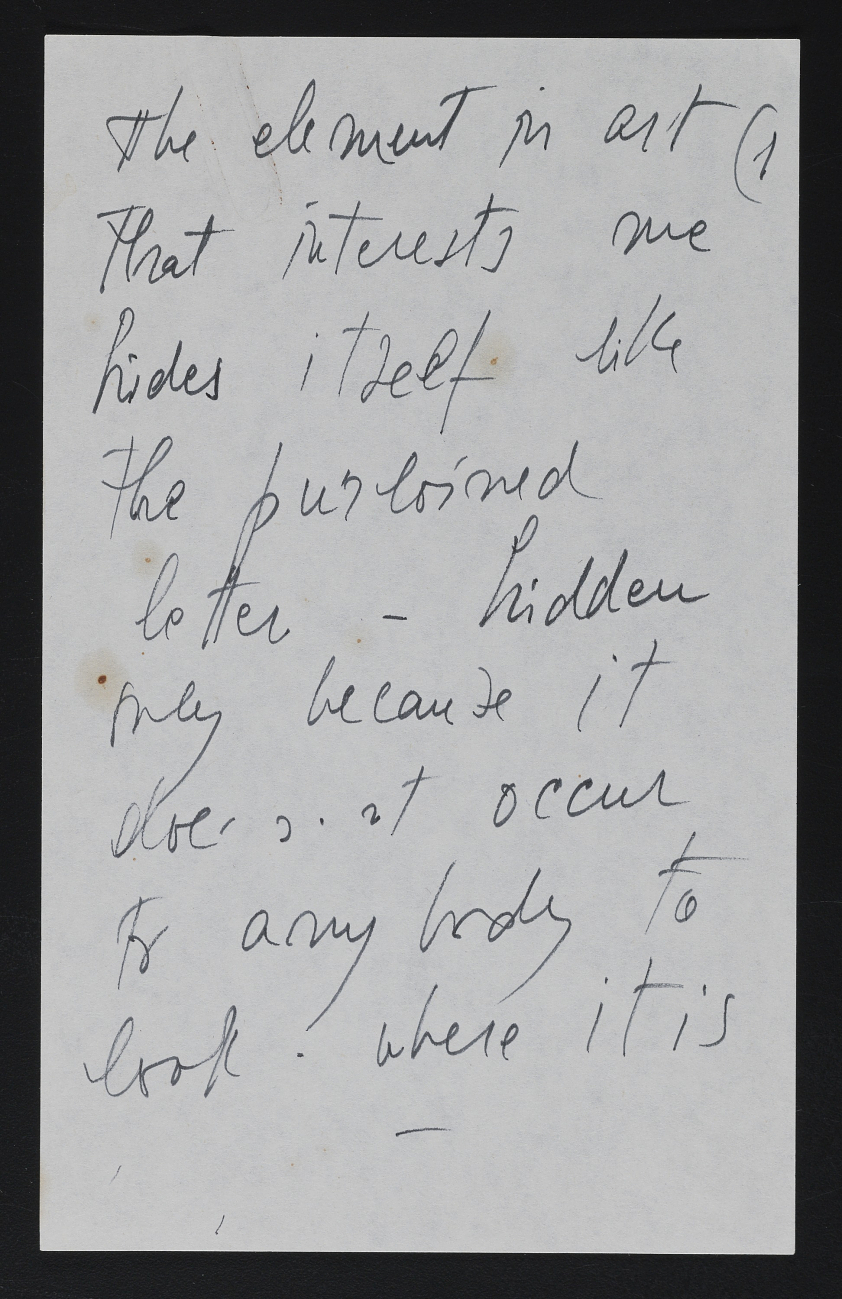 The element in art (1
that interests me
hides itself like
the purloined
letter – hidden
only because it
does not occur
to any body to
look where it is
—